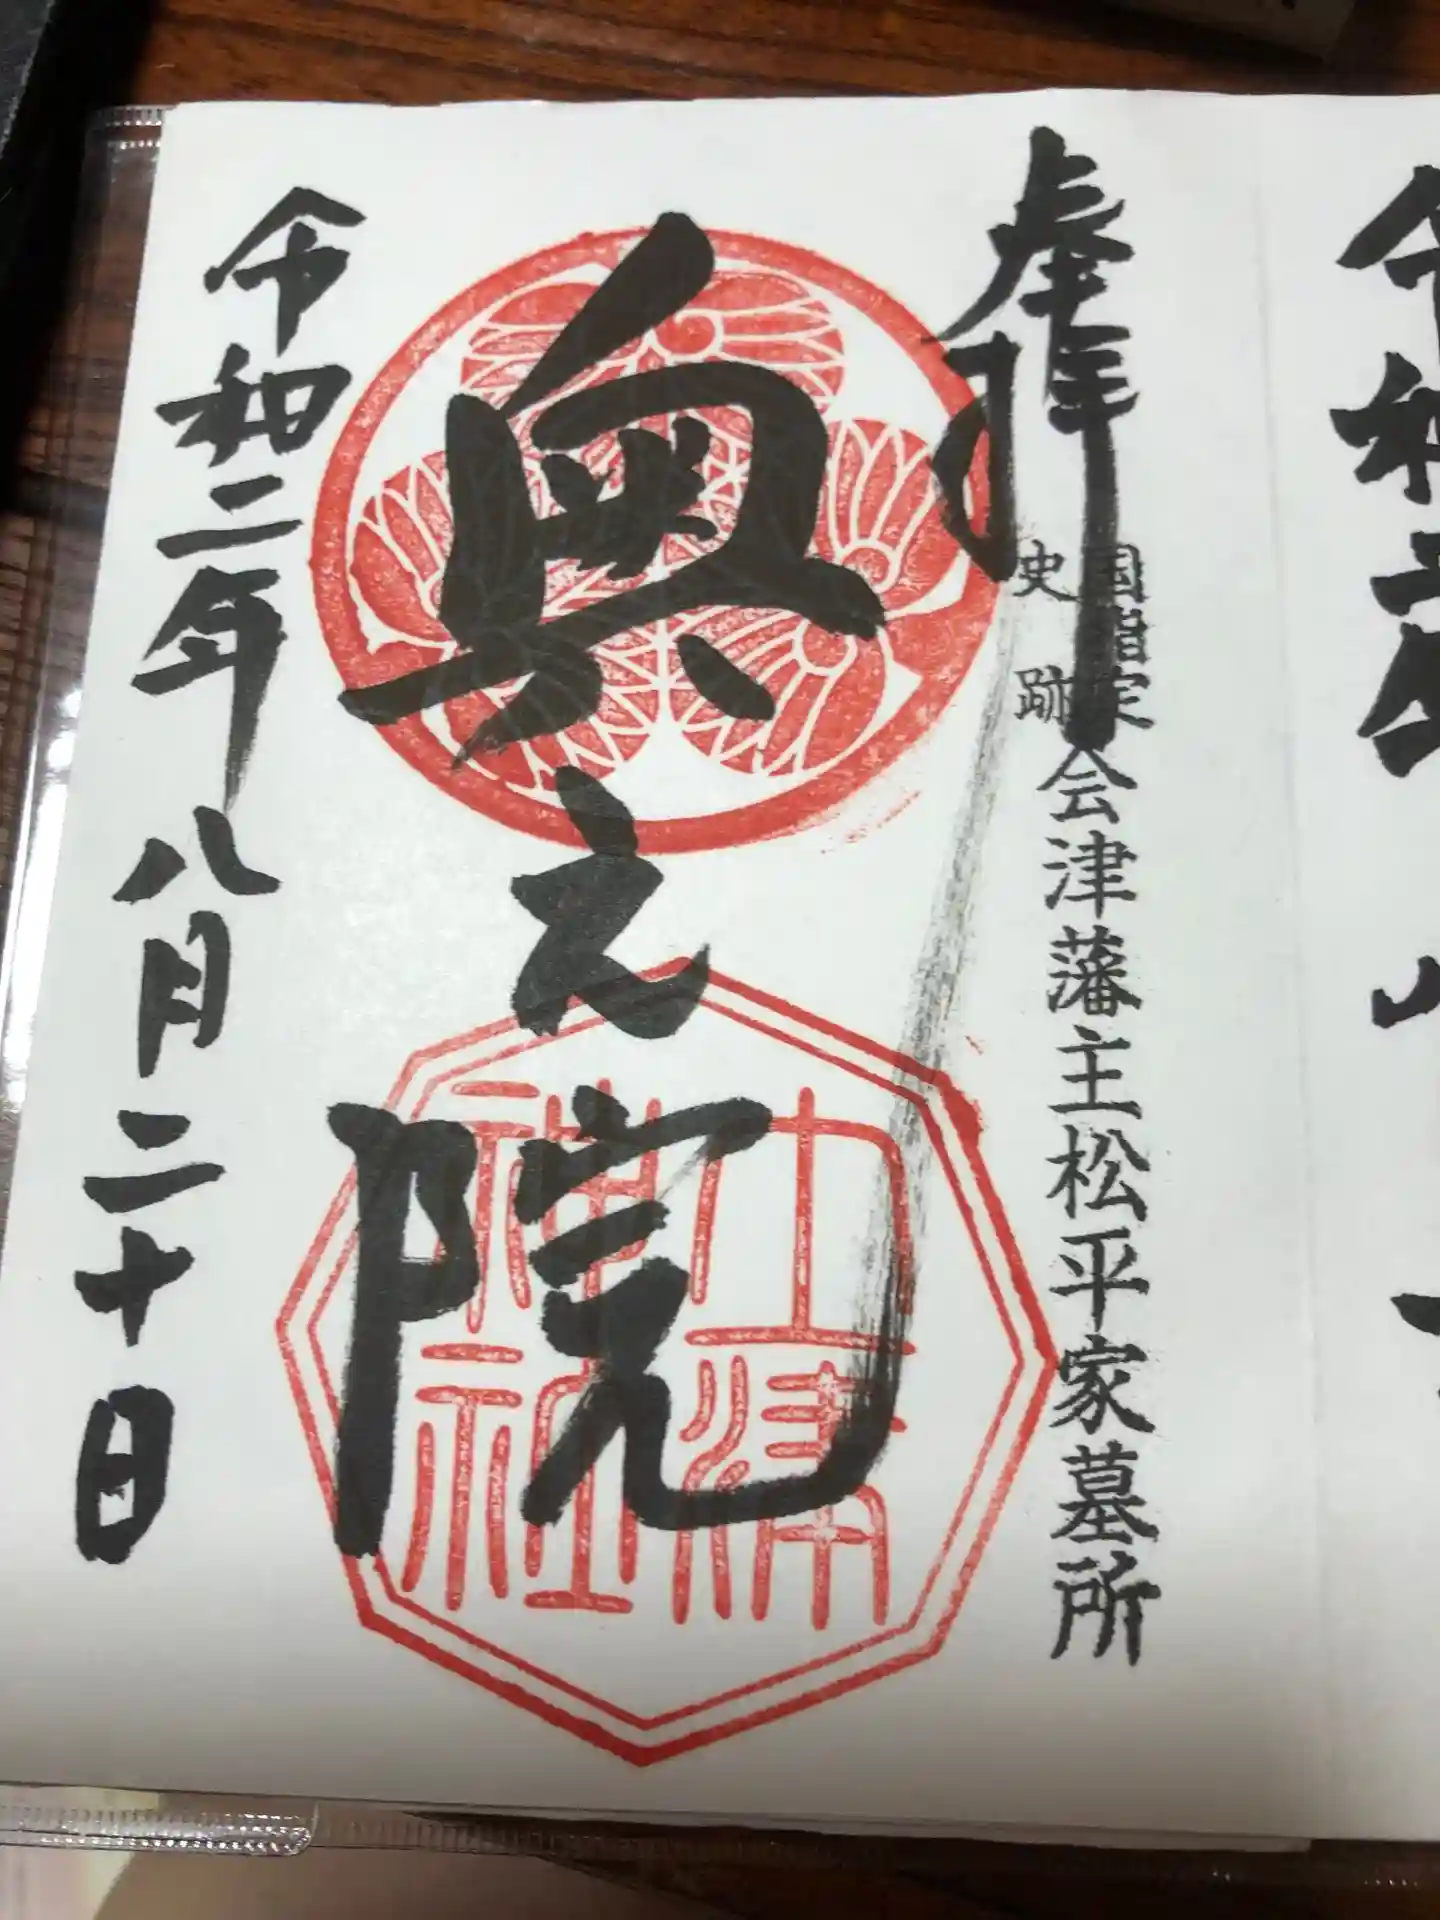 奉拝
国指定
史跡
会津藩主松平家墓所
奥之院
土津
神社
令和二年八月二十日